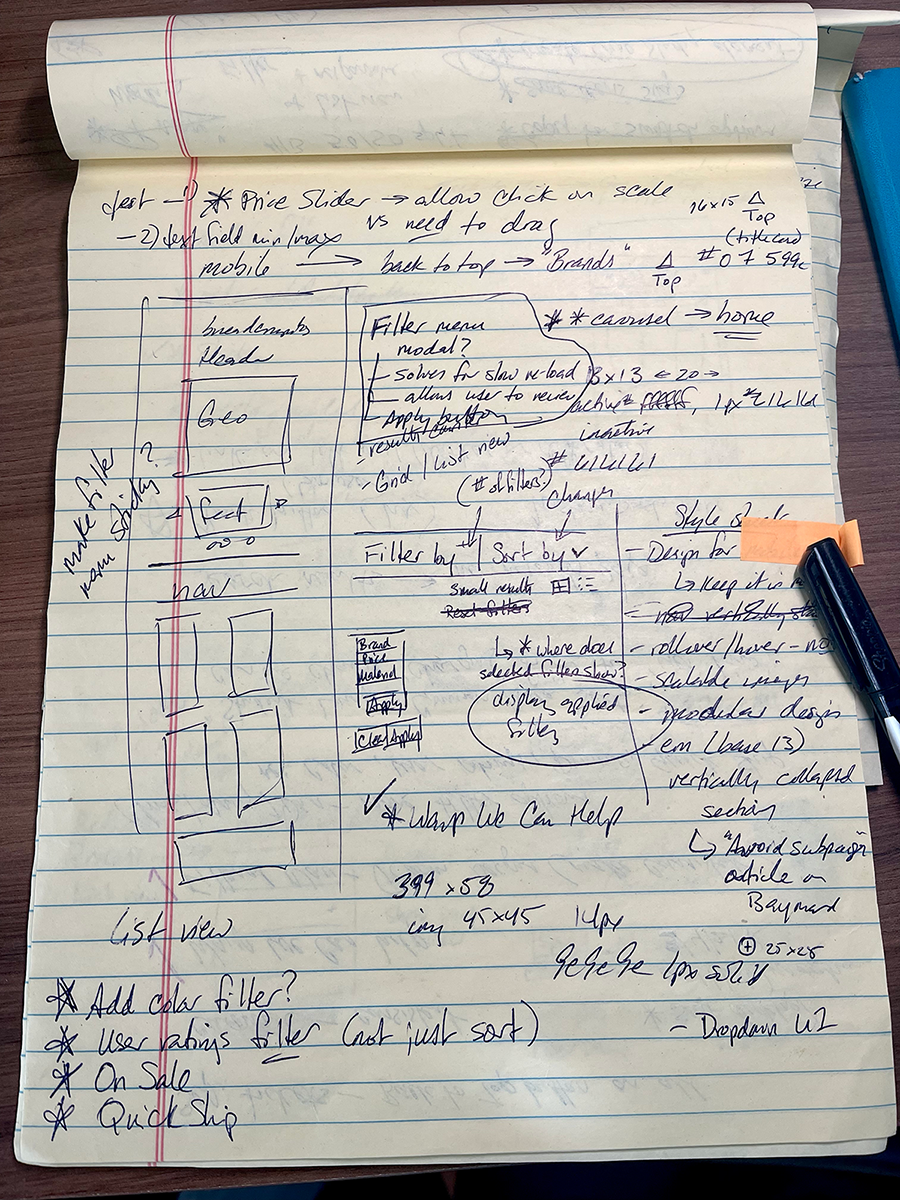 test - 1) * Price Slider → allow click on scale
vs need to drag
- 2) text field min/max
mobile → back to top → "Brands"
16x15 △
Top
△
Top
breadcrumbs
Header
Geo
< feat >
nav
make filter
nav sticky?
Filter menu
modal?
- solves for slow re-load
- allows user to review
- Apply button
- results/counter
- Grid / list view
* * carousel → home
13x13 ← 20 →
active # ffffff, 1px
inactive
# 616161
(# of filters?)
changes
Filter by + | Sort by
small results
Reset filters
↳ * where does
selected filters show?
display applied
filters
Brand
Price
Material
Apply
Clear Apply
- Design for
↳ keep it in
- nav vertically
- rollover/hover - no
- scalable images
- modular design
- em (base 13)
vertically collapsed
section
↳ "Avoid subpages"
article on
Baymard
✓
* Ways We Can Help
399 x 58
img 45x45 14px
⊕ 25x25
9e9e9e 1px solid
- Dropdown UI
List view
* Add color filter?
* User ratings filter (not just sort)
* On Sale
* Quick Ship